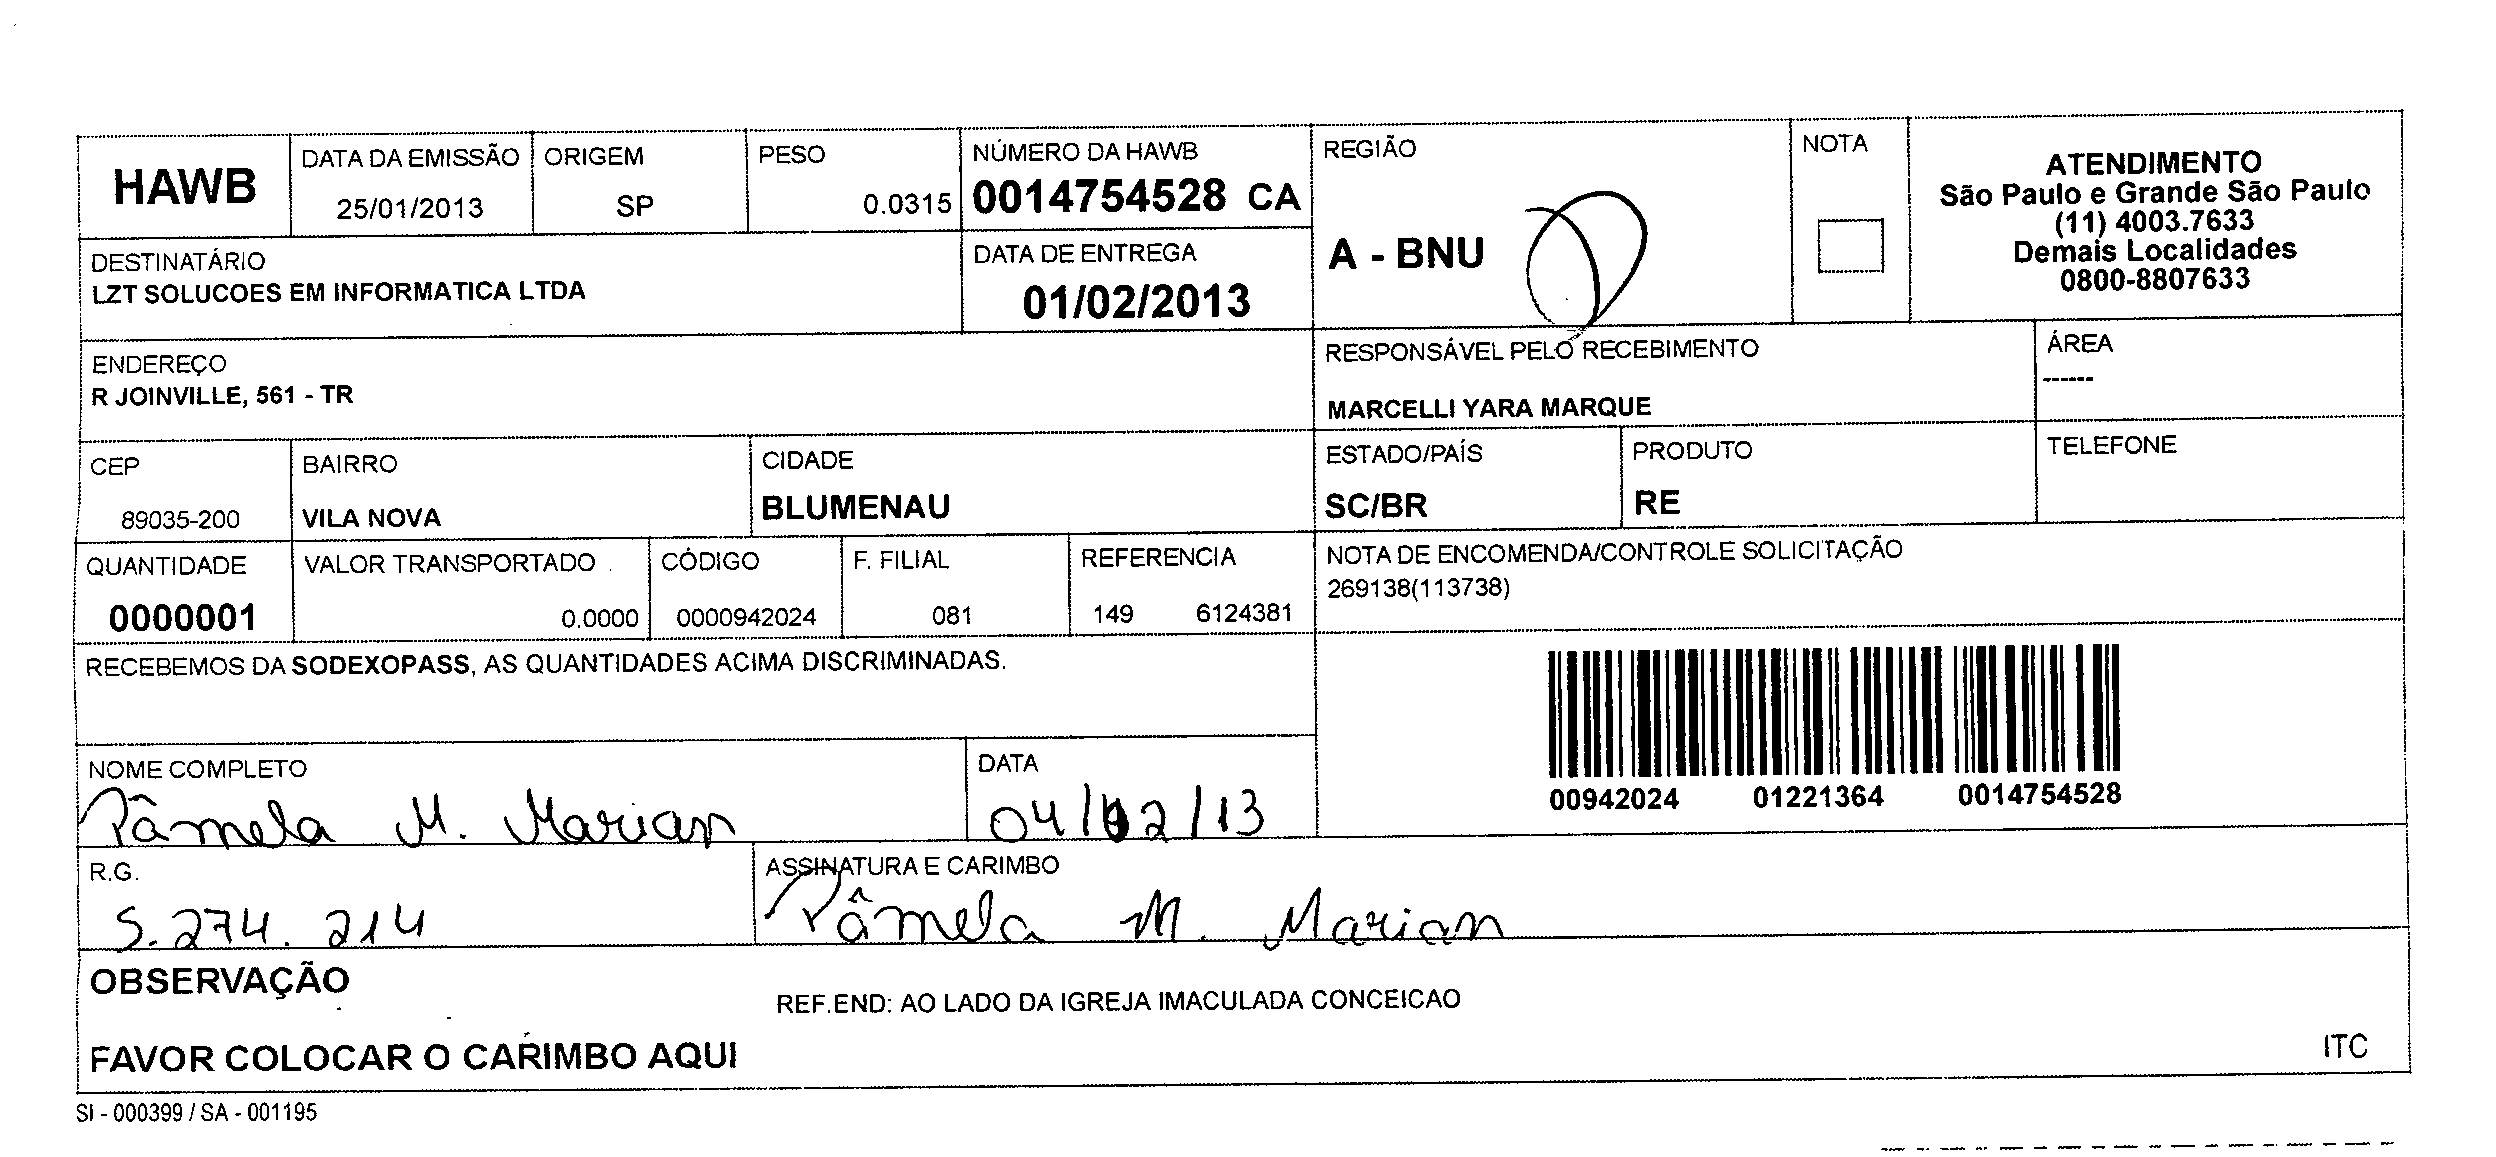 HAWB
DATA DA EMISSÃO
25/01/2013
ORIGEM
SP
PESO
0.0315
NÚMERO DA HAWB
0014754528 CA
REGIÃO
A - BNU
NOTA
ATENDIMENTO
São Paulo e Grande São Paulo
(11) 4003.7633
Demais Localidades
0800-8807633
DESTINATÁRIO
LZT SOLUCOES EM INFORMATICA LTDA
DATA DE ENTREGA
01/02/2013
ENDEREÇO
R JOINVILLE, 561 - TR
RESPONSÁVEL PELO RECEBIMENTO
MARCELLI YARA MARQUE
ÁREA
------
CEP
89035-200
BAIRRO
VILA NOVA
CIDADE
BLUMENAU
ESTADO/PAÍS
SC/BR
PRODUTO
RE
TELEFONE
QUANTIDADE
0000001
VALOR TRANSPORTADO
0.0000
CÓDIGO
0000942024
F. FILIAL
081
REFERENCIA
149 6124381
NOTA DE ENCOMENDA/CONTROLE SOLICITAÇÃO
269138(113738)
RECEBEMOS DA SODEXOPASS, AS QUANTIDADES ACIMA DISCRIMINADAS.
00942024 01221364 0014754528
NOME COMPLETO
Pâmela M. Marian
DATA
04/02/13
R.G.
5.274.214
ASSINATURA E CARIMBO
Pâmela M. Marian
OBSERVAÇÃO
REF.END: AO LADO DA IGREJA IMACULADA CONCEICAO
FAVOR COLOCAR O CARIMBO AQUI
ITC
SI - 000399 / SA - 001195